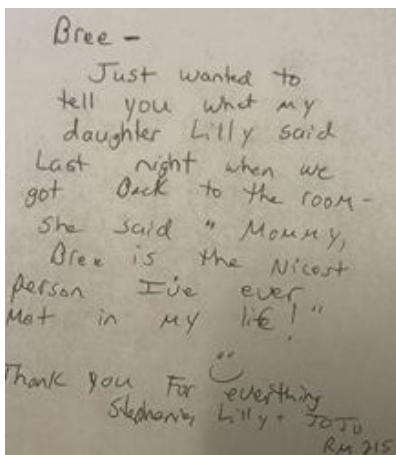 Bree -
Just wanted to
tell you what my
daughter Lilly said
Last night when we
got Back to the room -
She said " Mommy,
Bree is the Nicest
person I've ever
Met in my life! "
Thank you For everthing
Stephanie, Lilly + JoJo
RM 215